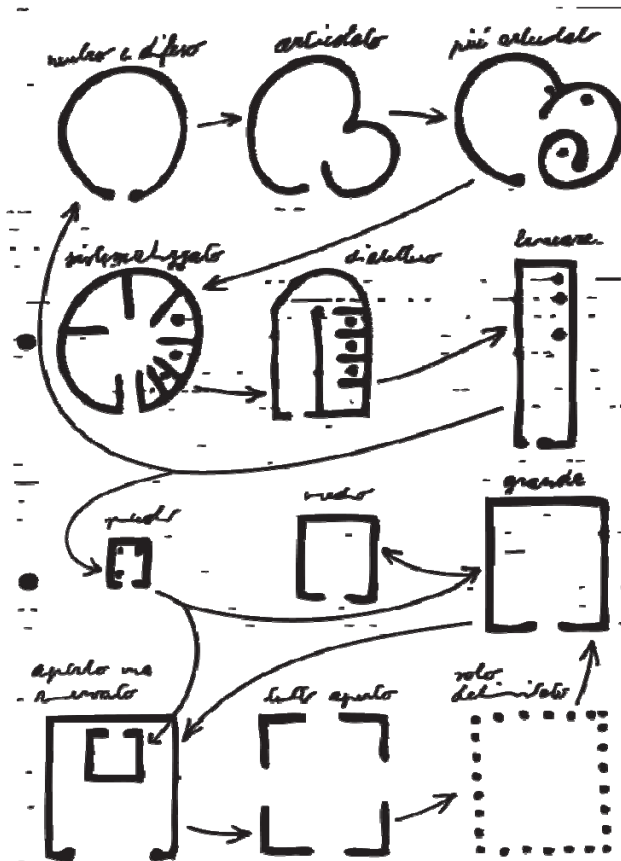 neutro e difeso
articolato
più articolato
sistematizzato
didattico
lineare
piccolo
medio
grande
aperto ma
riservato
tutto aperto
solo
delimitato